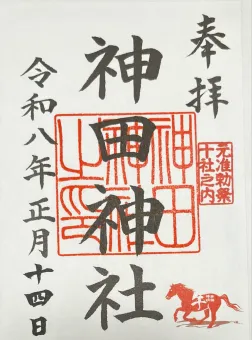 奉拝
元准勅祭
十社之内
神田神社
神田
神社
之印
令和八年正月十四日